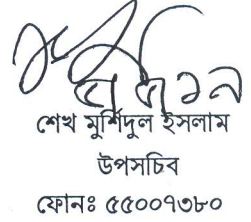 শেখ মুর্শিদুল ইসলাম
উপসচিব
ফোনঃ ৫৫০০৭৩৮০